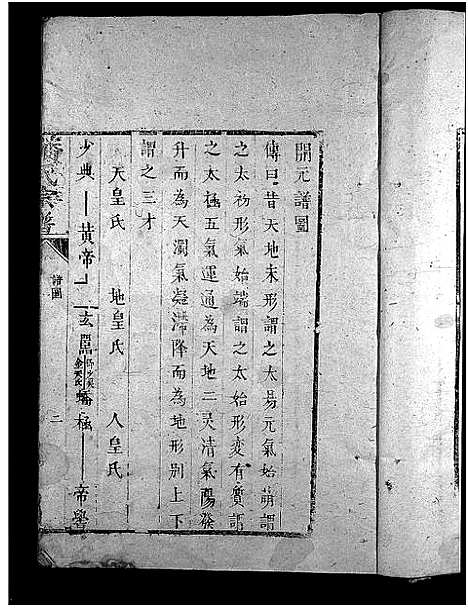 開元譜圖
傳曰昔天地未形謂之太易元氣始萌謂
之太初形氣始端謂之太始形變有質謂
之太極五氣運通為天地二灵清氣陽發
升而為天濁氣凝滯降而為地形別上下
謂之三才
天皇氏 地皇氏 人皇氏
少典 黄帝 玄囂 即少昊金天氏 蟜極 帝嚳
氏宗譜
譜圖
二